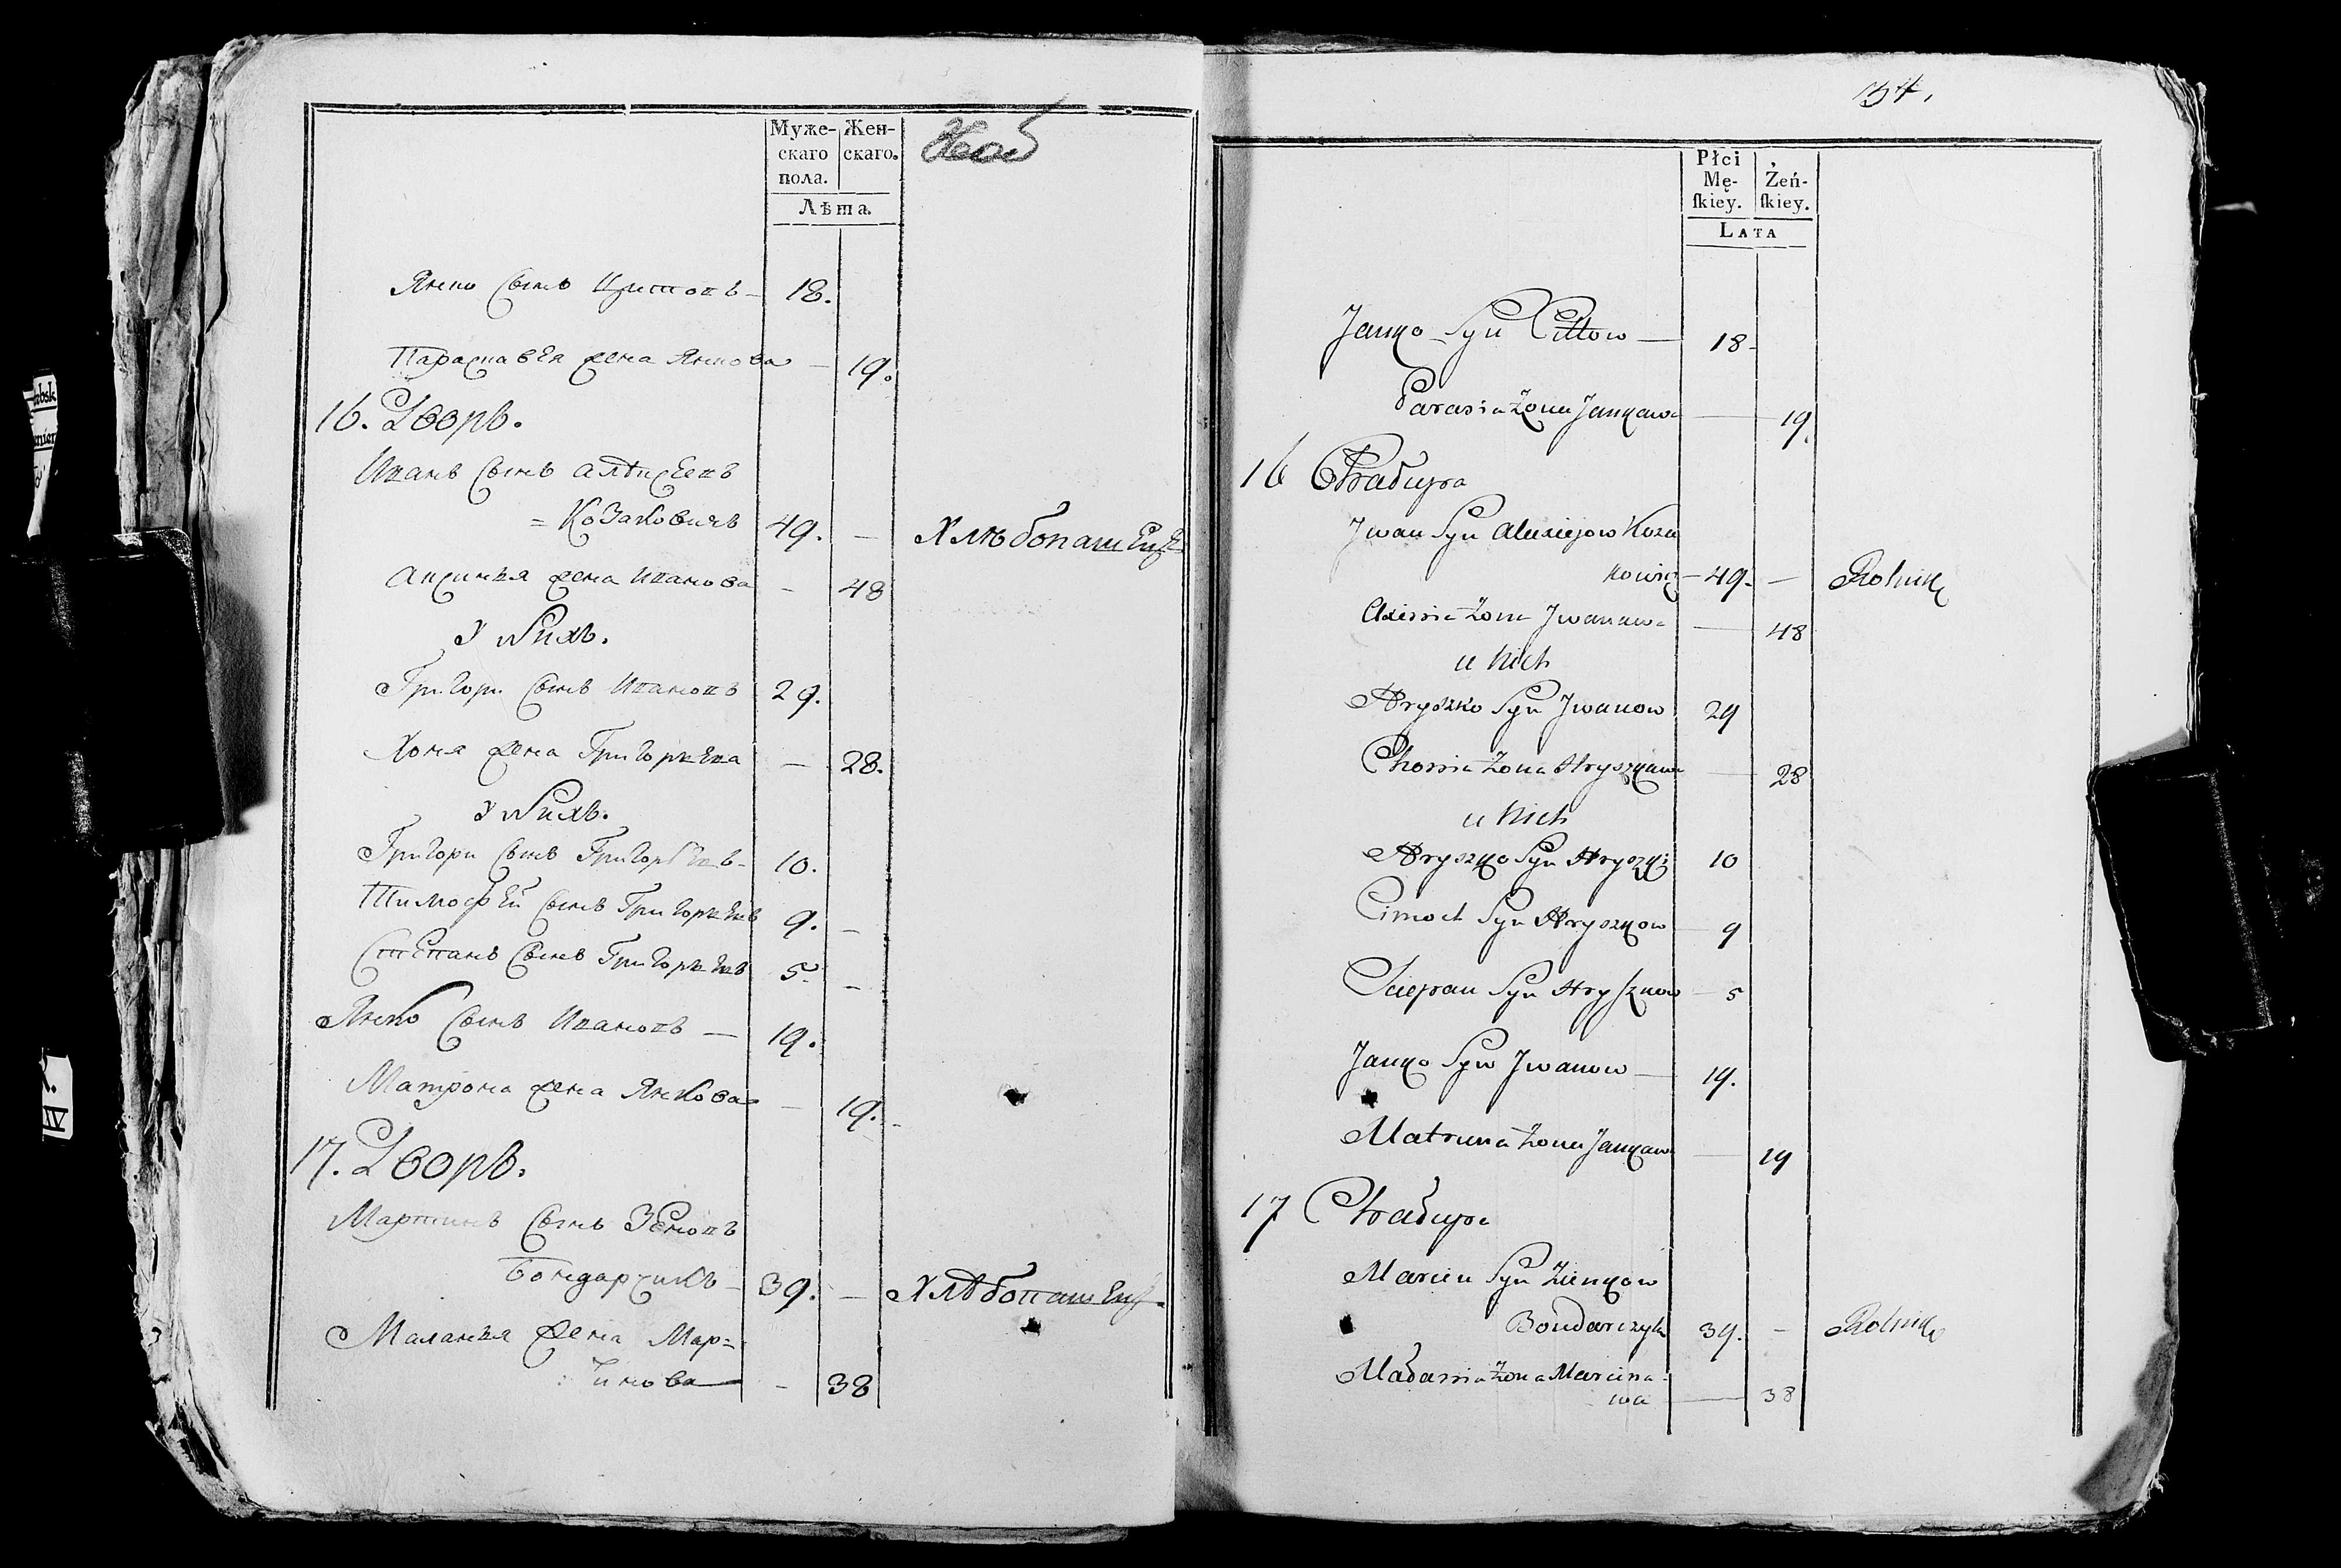 Муже-
скаго
пола.
Жен-
скаго.
Лѣта.
Янко Сынъ Цитовъ — 18.
Параскавея жена Янкова — 19.
16. Дворъ.
Иванъ Сынъ Алѣксеевъ
= Козаковичъ 49. — Хлѣбопашецъ
Аксинья жена Иванова — 48
У Нихъ.
Григори Сынъ Ивановъ 29.
Хоня жена Григорьева — 28.
У Нихъ.
Григори Сынъ Григорьевъ - 10.
Тимофей Сынъ Григорьевъ 9. —
Степанъ Сынъ Григорьевъ 5. —
Янко Сынъ Ивановъ — 19.
Матрона жена Янкова — 19.
17. Дворъ.
Мартинъ Сынъ Зеновъ
Бондарчикъ — 39. — Хлѣбопашецъ
Маланья жена Мар=
тинова — 38
34.
Płci
Mę-
ſkiey.
Żeń-
ſkiey.
LATA
Janko Syn Cittow — 18
Parasia Żona Jankowa — 19.
16 Chałupa
Jwan Syn Alexiejow Koza
kowicz — 49. — Rolnik
Axiinia Żona Jwanowa — 48
u Nich
Hryszko Syn Jwanow 29
Chonia Żona Hryszkowa — 28
u Nich
Hryszko Syn Hryszk: 10
Cimoch Syn Hryszkow 9
Sciepan Syn Hryszkow — 5
Janko Syn Jwanow — 19.
Matruna Żona Jankow — 19
17 Chałupa
Marcin Syn Zienkow
Bondarczyk 39. — Rolnik
Małania Żona Marcino
wa — 38